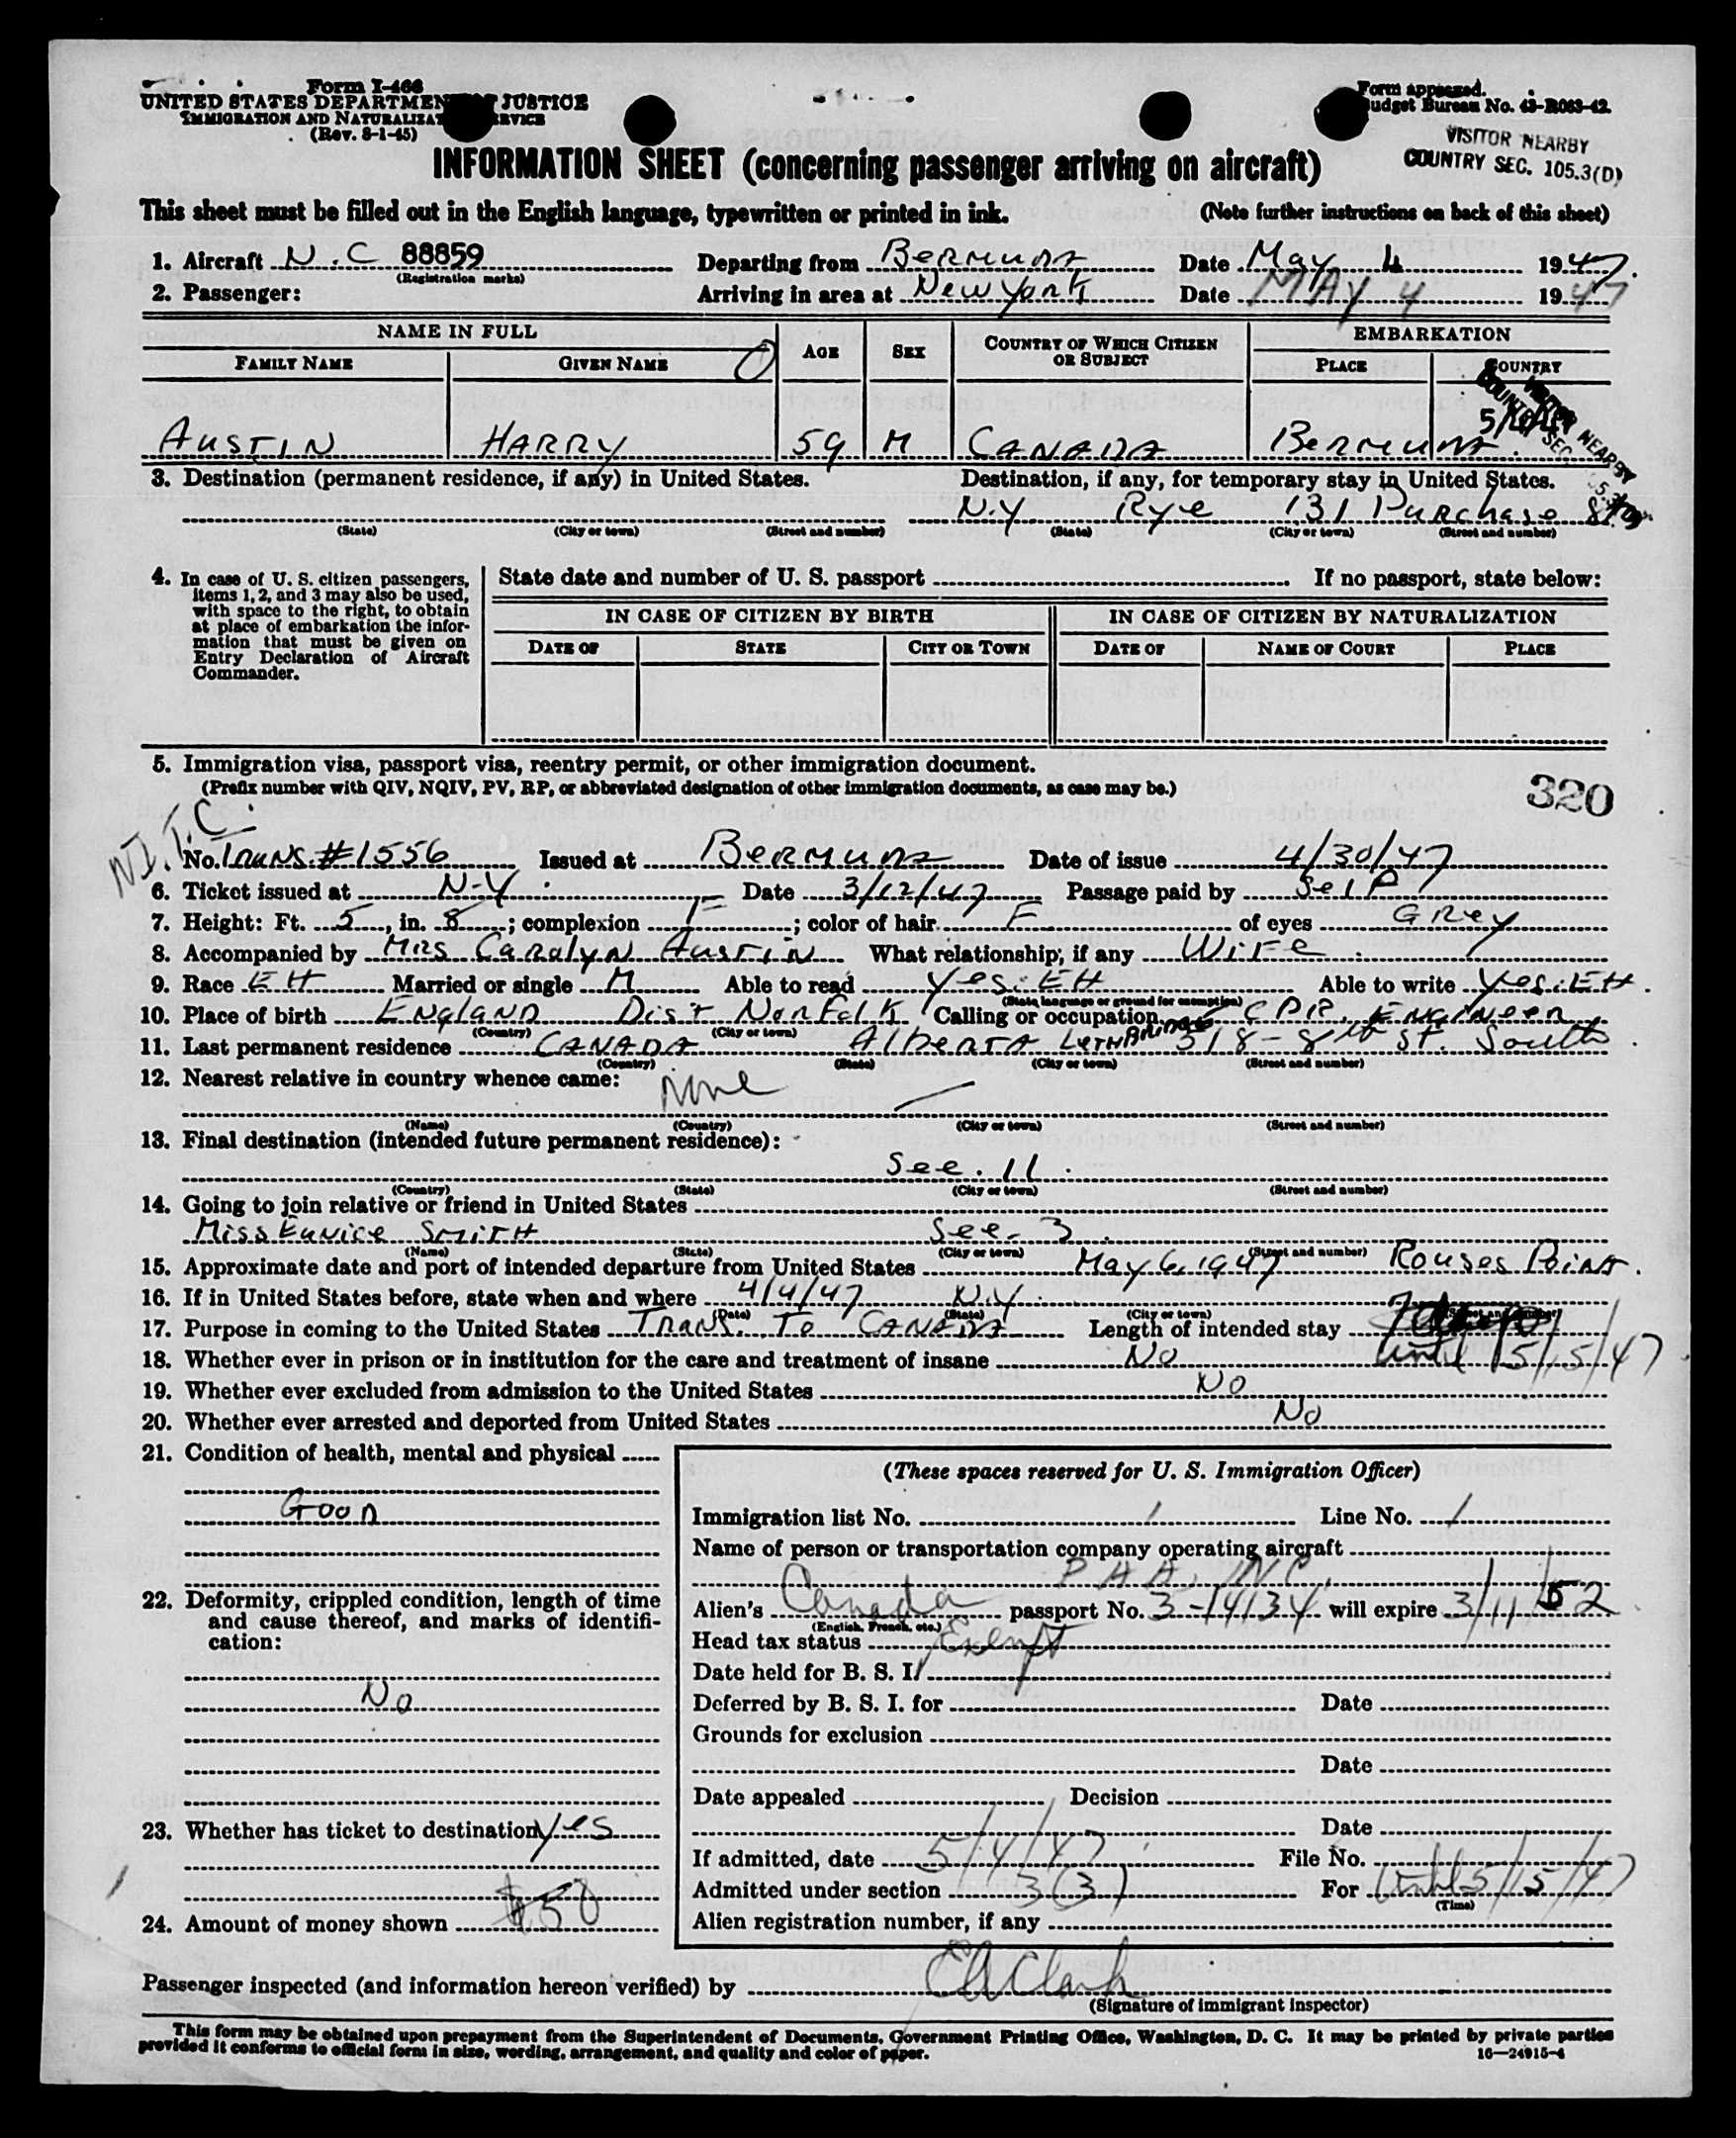 Form I-466
UNITED STATES DEPARTMENT OF JUSTICE
IMMIGRATION AND NATURALIZATION SERVICE
(Rev. 8-1-45)
Form approved.
Budget Bureau No. 43-R063-42.
VISITOR NEARBY
COUNTRY SEC. 105.3(D)
INFORMATION SHEET (concerning passenger arriving on aircraft)
This sheet must be filled out in the English language, typewritten or printed in ink. (Note further instructions on back of this sheet)
1. Aircraft N.C 88859 Departing from BERMUDA Date May 4 1947.
(Registration marks)
2. Passenger: Arriving in area at New York Date MAY 4 1947
NAME IN FULL AGE SEX COUNTRY OF WHICH CITIZEN OR SUBJECT EMBARKATION
FAMILY NAME GIVEN NAME PLACE COUNTRY
AUSTIN HARRY 59 M CANADA BERMUDA
VISITOR NEARBY
COUNTRY SEC. 105.3(D)
3. Destination (permanent residence, if any) in United States. Destination, if any, for temporary stay in United States.
N.Y Rye 131 Purchase St.
(State) (City or town) (Street and number) (State) (City or town) (Street and number)
4. In case of U. S. citizen passengers, items 1, 2, and 3 may also be used, with space to the right, to obtain at place of embarkation the information that must be given on Entry Declaration of Aircraft Commander.
State date and number of U. S. passport If no passport, state below:
IN CASE OF CITIZEN BY BIRTH IN CASE OF CITIZEN BY NATURALIZATION
DATE OF STATE CITY OR TOWN DATE OF NAME OF COURT PLACE
5. Immigration visa, passport visa, reentry permit, or other immigration document.
(Prefix number with QIV, NQIV, PV, RP, or abbreviated designation of other immigration documents, as case may be.)
320
No. Trans. #1556 Issued at BERMUDA Date of issue 4/30/47
6. Ticket issued at N-Y. Date 3/12/47 Passage paid by Self
7. Height: Ft. 5, in. 8; complexion F; color of hair F of eyes GRey
8. Accompanied by MRS CAROLYN AUSTIN What relationship, if any WIFE
9. Race EH Married or single M Able to read yes. EH Able to write yes. EH.
(State language or ground for exemption)
10. Place of birth ENGLAND Dist NORFOLK Calling or occupation CPR. ENGINEER
(Country) (City or town)
11. Last permanent residence CANADA Alberta LETHBRIDGE 318-8th ST. South.
(Country) (State) (City or town) (Street and number)
12. Nearest relative in country whence came: None
(Name) (Country) (City or town) (Street and number)
13. Final destination (intended future permanent residence):
See. 11.
(Country) (State) (City or town) (Street and number)
14. Going to join relative or friend in United States
Miss Eunice SMITH See- 3.
(Name) (State) (City or town) (Street and number)
15. Approximate date and port of intended departure from United States May 6, 1947 Rouses Point.
16. If in United States before, state when and where 4/4/47 N.Y.
(Date) (State) (City or town) (Street and number)
17. Purpose in coming to the United States Trans. To CANADA Length of intended stay
until 5/5/47
18. Whether ever in prison or in institution for the care and treatment of insane No
19. Whether ever excluded from admission to the United States No
20. Whether ever arrested and deported from United States No
21. Condition of health, mental and physical
GOOD
22. Deformity, crippled condition, length of time and cause thereof, and marks of identification:
No
23. Whether has ticket to destination yes
24. Amount of money shown $50
(These spaces reserved for U. S. Immigration Officer)
Immigration list No. 1 Line No. 1
Name of person or transportation company operating aircraft
P A A, INC.
Alien's Canada passport No. 3-14134 will expire 3/11/52
(English, French, etc.)
Head tax status Exempt
Date held for B. S. I.
Deferred by B. S. I. for Date
Grounds for exclusion
Date
Date appealed Decision
Date
If admitted, date 5/4/47 File No.
Admitted under section 3(3) For Until 5/5/47
(Time)
Alien registration number, if any
Passenger inspected (and information hereon verified) by EA Clark
(Signature of immigrant inspector)
This form may be obtained upon prepayment from the Superintendent of Documents, Government Printing Office, Washington, D. C. It may be printed by private parties
provided it conforms to official form in size, wording, arrangement, and quality and color of paper. 16—24915-4